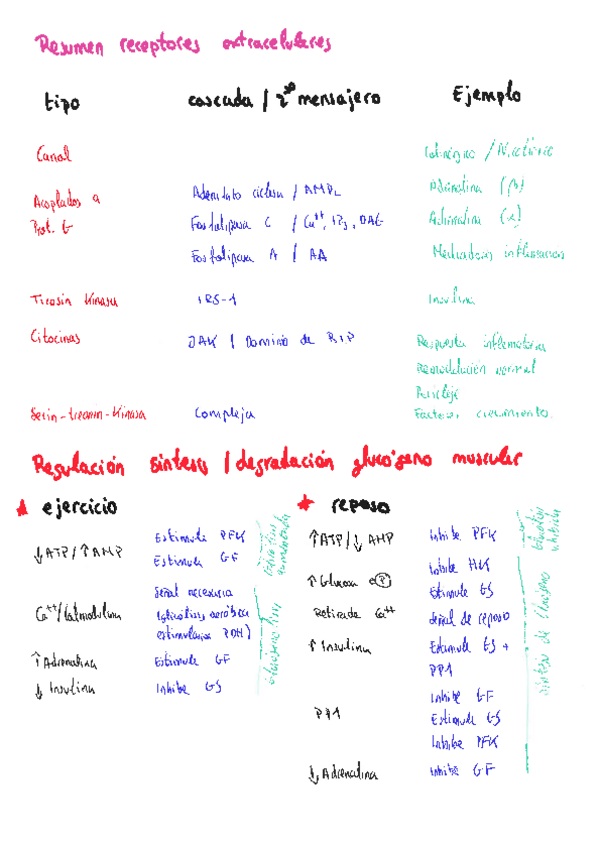 Resumen receptores extracelulares
tipo cascada / 2º mensajero Ejemplo
Canal Colinérgico / Nicotínico
Acoplados a Prot. G
Adenilato ciclasa / AMPc Adrenalina (β)
Fosfolipasa C / Ca++, IP3, DAG Adrenalina (α)
Fosfolipasa A / AA Mediadores inflamación
Tirosin Kinasa IRS-1 Insulina
Citocinas JAK / Dominio de RIP Respuesta inflamatoria
Remodelación normal
Serin-treonin-Kinasa Compleja Factores crecimiento
Regulación síntesis / degradación glucógeno muscular
★ ejercicio
↓ATP/↑AMP Estimula PFK
Estimula GF
Ca++/Calmodulina Señal necesaria
estimulación PDH)
↑Adrenalina Estimula GF
↓ Insulina Inhibe GS
★ reposo
↑ATP/↓AMP Inhibe PFK
Inhibe HK
↑Glucosa 6P Estimula GS
Retirada Ca++ Señal de reposo
↑ Insulina Estimula GS +
PP1
Inhibe GF
PP1 Estimula GS
Inhibe PFK
↓Adrenalina Inhibe GF
Síntesis de Glucógeno